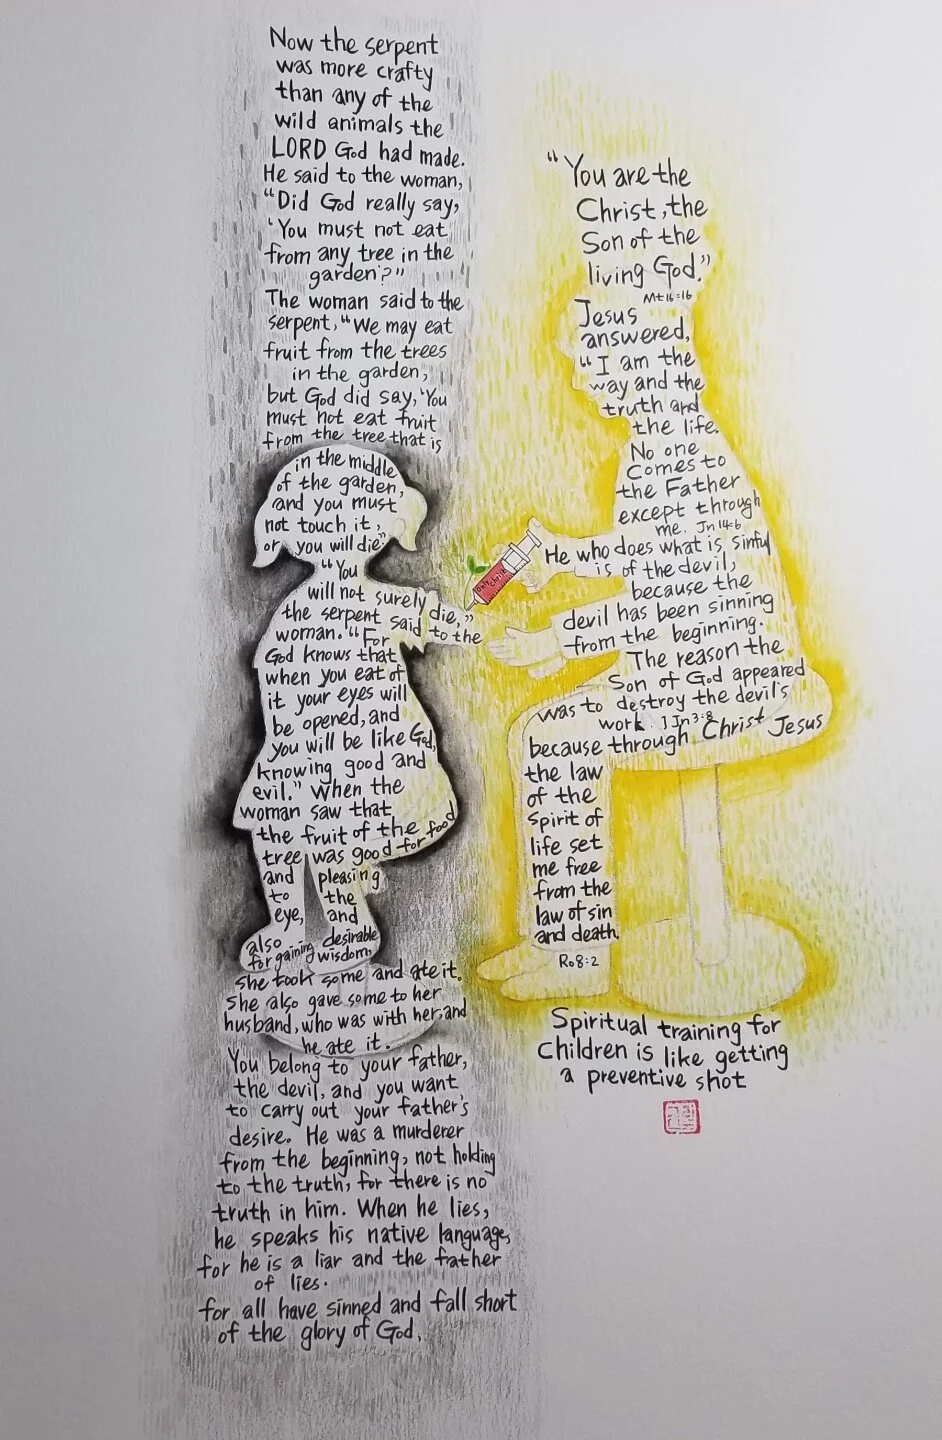 Now the serpent
was more crafty
than any of the
wild animals the
LORD God had made.
He said to the woman,
"Did God really say,
'You must not eat
from any tree in the
garden'?"
The woman said to the
serpent, "We may eat
fruit from the trees
in the garden,
but God did say, 'You
must not eat fruit
from the tree that is
in the middle
of the garden,
and you must
not touch it,
or you will die."
"You
will not surely die,"
the serpent said to the
woman. "For
God knows that
when you eat of
it your eyes will
be opened, and
you will be like God,
knowing good and
evil." When the
woman saw that
the fruit of the
tree was good for food
and pleasing
to the
eye, and
also desirable
for gaining wisdom,
she took some and ate it.
She also gave some to her
husband, who was with her, and
he ate it.
You belong to your father,
the devil, and you want
to carry out your father's
desire. He was a murderer
from the beginning, not holding
to the truth, for there is no
truth in him. When he lies,
he speaks his native language,
for he is a liar and the father
of lies.
for all have sinned and fall short
of the glory of God,
"You are the
Christ, the
Son of the
living God."
Mt16:16
Jesus
answered,
"I am the
way and the
truth and
the life.
No one
comes to
the Father
except through
me. Jn14:6
He who does what is sinful
is of the devil,
because the
devil has been sinning
from the beginning.
The reason the
Son of God appeared
was to destroy the devil's
work. 1Jn3:8
because through Christ Jesus
the law
of the
spirit of
life set
me free
from the
law of sin
and death.
Ro8:2
only christ
Spiritual training for
Children is like getting
a preventive shot